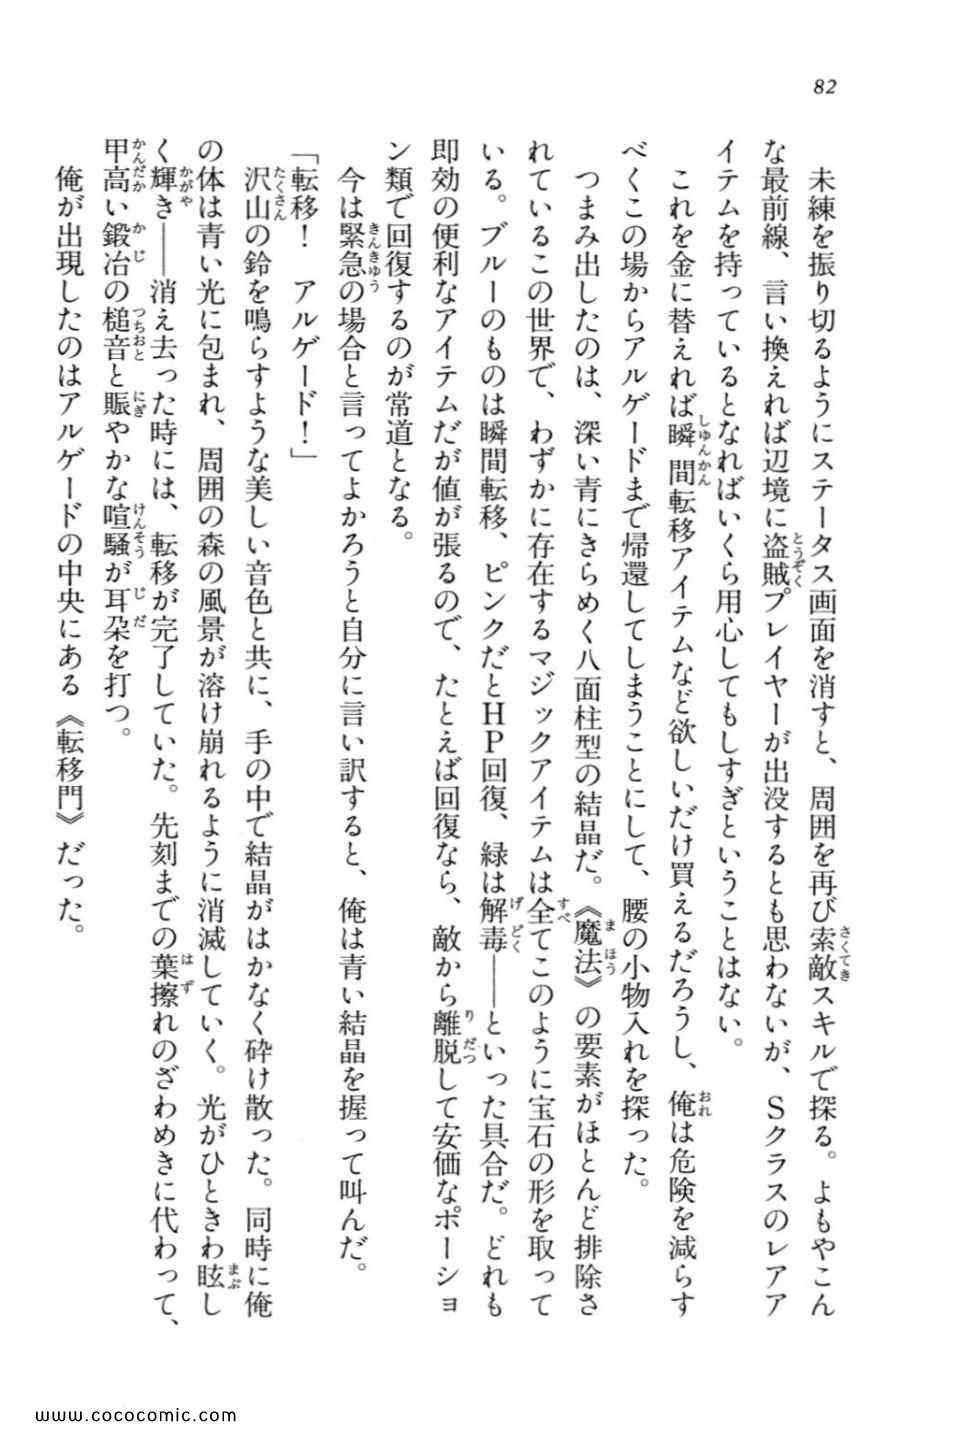 82
未練を振り切るようにステータス画面を消すと、周囲を再び索敵スキルで探る。よもやこん
な最前線、言い換えれば辺境に盗賊プレイヤーが出没するとも思わないが、Sクラスのレアア
イテムを持っているとなればいくら用心してもしすぎということはない。
これを金に替えれば瞬間転移アイテムなど欲しいだけ買えるだろうし、俺は危険を減らす
べくこの場からアルゲードまで帰還してしまうことにして、腰の小物入れを探った。
つまみ出したのは、深い青にきらめく八面柱型の結晶だ。《魔法》の要素がほとんど排除さ
れているこの世界で、わずかに存在するマジックアイテムは全てこのように宝石の形を取って
いる。ブルーのものは瞬間転移、ピンクだとHP回復、緑は解毒――といった具合だ。どれも
即効の便利なアイテムだが値が張るので、たとえば回復なら、敵から離脱して安価なポーショ
ン類で回復するのが常道となる。
今は緊急の場合と言ってよかろうと自分に言い訳すると、俺は青い結晶を握って叫んだ。
「転移！　アルゲード！」
沢山の鈴を鳴らすような美しい音色と共に、手の中で結晶がはかなく砕け散った。同時に俺
の体は青い光に包まれ、周囲の森の風景が溶け崩れるように消滅していく。光がひときわ眩し
く輝き――消え去った時には、転移が完了していた。先刻までの葉擦れのざわめきに代わって、
甲高い鍛冶の槌音と賑やかな喧騒が耳朶を打つ。
俺が出現したのはアルゲードの中央にある《転移門》だった。
www.cococomic.com